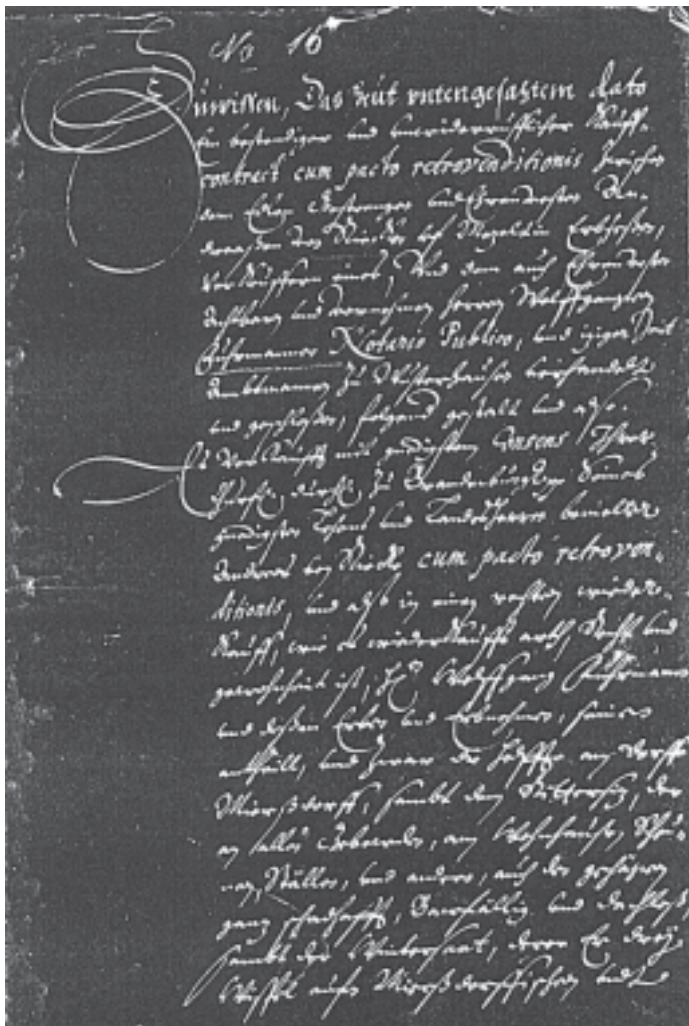 No 16
Zuwissen, Das heut untengesaztem dato
Ein bestendiger und unwiederrufflicher Kauff-
contract cum pacto retrovenditionis zwischen
dem Edlen Gestrengen und Ehrenvesten
Erbsessen,
Verkäuffern eines, Und dem auch Ehrenvesten
Achtbarn und vornehmen Herrn Wolffgangen
Notario Publico, und iziger Zeit
Ambtmannen zu Wusterhausen
und geschlossen, folgend gestalt und also.
Es Verkaufft mit gnedigsten Consens Ihrer
Churfl. Durchl. zu Brandenburg Seines
gnedigsten Lehens und Landesherrn
cum pacto retroven-
ditionis, und also in einen rechten wieder-
Kauff, wie es wiederKauffs arth, Recht und
gewohnheit ist, Wolffgang
und dessen Erben und Erbnehmer, seinen
antheill, und zwar die helffte am dorff
Mierßdorff, sambt dem Rittersiz, der
an allen Gebeuden, am Wohnhause, Scheu-
nen, Ställen, und andern, auch
ganz schadhafft, Baufällig und dachloß,
sambt der Wintersaat, derer Er drey
Wispel aufm Mierßdorffischen